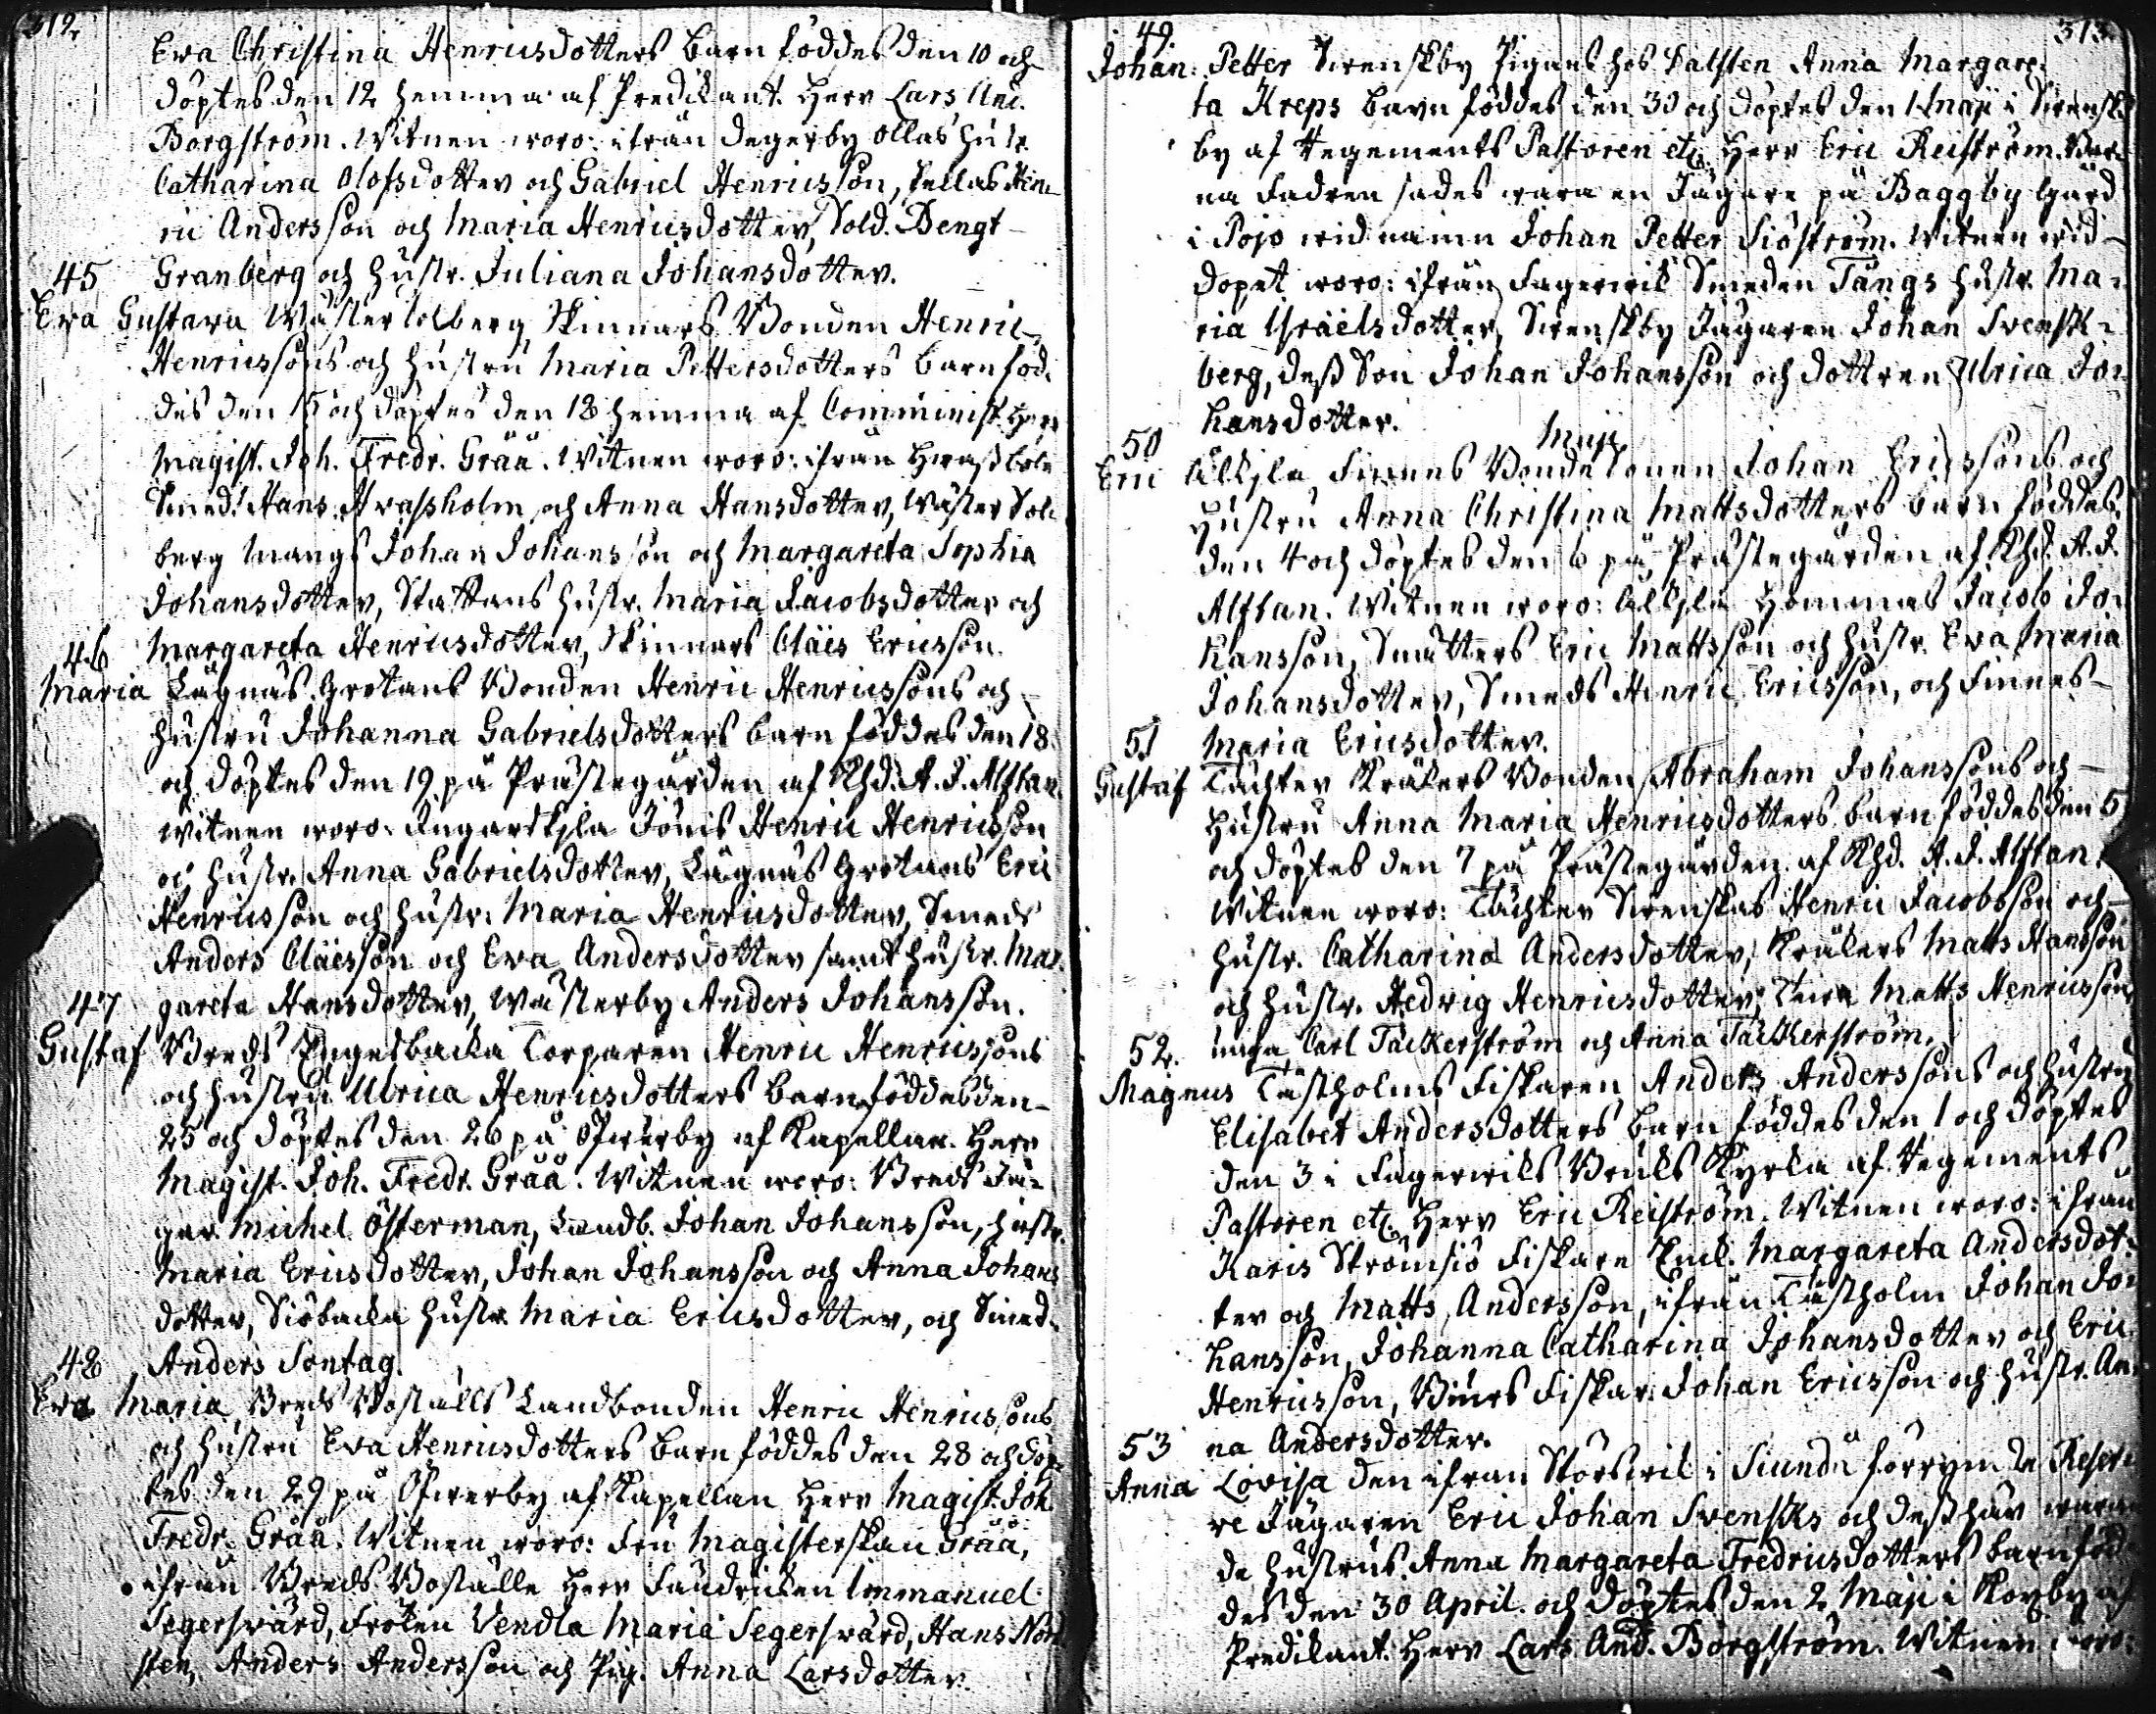 312.
Eva Christina Henricsdotters barn föddes den 10 och
döptes den 12 hemma af Predikant. Herr Lars And.
Borgström. Witnen woro: ifrån Degerby Ollas hustr.
Catharina Olofsdotter och Gabriel Henricsson, Hen-
ric Andersson och Maria Henricsdotter, Sold. Bengt
Granberg och hustr. Juliana Johansdotter.
45
Eva Gustava Wäster Solberg Skinnars Bonden Henric
Henricssons och hustru Maria Pettersdotters barn föd-
des den 15 och döptes den 18 hemma af Comminist. Herr
Magist. Joh. Fredr. Gråå. Witnen woro: ifrån
Smed. Hans Krassholm och Anna Hansdotter, Wäster Sol-
berg Mangs Johan Johansson och Margareta Sophia
Johansdotter, hustr. Maria Jacobsdotter och
Margareta Henricsdotter, Skinnars Claes Ericsson.
46
Maria Lägnäs Grotans Bonden Henric Henricssons och
hustru Johanna Gabrielsdotters barn föddes den 18
och döptes den 19 på Prästegården af Khd. A. J. Alftan.
Witnen woro: Ingarskila Jönis Henric Henricsson
och hustr. Anna Gabrielsdotter, Lägnäs Grotans Eric
Henricsson och hustr. Maria Henricsdotter, Smeds
Anders Claesson och Eva Andersdotter samt hustr. Mar-
gareta Hansdotter, Wästerby Anders Johansson.
47
Gustaf Breds Engesbacka Torparen Henric Henricssons
och hustru Ulrica Henricsdotters barn föddes den
25 och döptes den 26 på Öfwerby af Kapellan. Herr
Magist. Joh. Fredr. Gråå. Witnen woro: Breds Jä-
gar. Michel Österman, Landb. Johan Johansson, hustr.
Maria Ericsdotter, Johan Johansson och Anna Johans
dotter, Siöbacka hustr. Maria Ericsdotter, och Smed.
Anders Sontag.
48
Eva Maria, Breds Boställs Landbonden Henric Henricssons
och hustru Eva Henricsdotters barn föddes den 28 och döp-
tes den 29 på Öfwerby af Kapellan Herr Magist. Joh.
Fredr. Gråå. Witnen woro: Fru Magisterskan Gråå,
ifrån Breds Boställe Herr Fändricken Immanuel
Segersvärd, Fröken Vendla Maria Segersvärd, Hans Nord
sten, Anders Andersson och Pig. Anna Larsdotter.
313.
49.
Johan Petter Svenskby Pigans hos Dalsten Anna Margare-
ta Kreps barn föddes den 30 och döptes den 1 Maji i Svensk-
by af Regements Pastoren etc. Herr Eric Reiström. Bar-
na Fadren sades wara en Jägare på Baggby Gård
i Pojo wid namn Johan Petter Siöström. Witnen wid
dopet woro: ifrån Fagerwik Smeden Tångs hustr. Ma-
ria Israelsdotter, Svenskby Jägaren Johan Svensk-
berg, dess Son Johan Johansson och dottren Ulrica Jo-
hansdotter.
Maji
50
Eric Finnes Bondesonen Johan Ericssons och
hustru Anna Christina Mattsdotters barn föddes
den 4 och döptes den 6 på Prästegården af Khd. A. J.
Alftan. Witnen woro: Hommas Jacob Jo-
hansson, Smätters Eric Mattsson och hustr. Eva Maria
Johansdotter, Smeds Henric Ericsson, och Finnes
Maria Ericsdotter.
51
Gustaf Täckter Kräkers Bonden Abraham Johanssons och
hustru Anna Maria Henricsdotters barn föddes den 5
och döptes den 7 på Prästegården af Khd. A. J. Alftan.
Witnen woro: Täckter Svenskas Henric Jacobsson och
hustr. Catharina Andersdotter, Kräkers Matts Hansson
och hustr. Hedvig Henricsdotter, Matts Henricsson,
unga Carl Täckerström och Anna Täckerström.
52.
Magnus Tästholms Fiskaren Anders Anderssons och hustru
Elisabet Andersdotters barn föddes den 1 och döptes
den 3 i Fagerwiks Bruks Kyrka af Regements
Pastoren etc. Herr Eric Reiström. Witnen woro: ifrån
Karis Strömsiö Fiskare Enk. Margareta Andersdot-
ter och Matts Andersson, ifrån Tästholm Johan Jo-
hansson, Johanna Catharina Johansdotter och Eric
Henricsson, Fiskar. Johan Ericsson och hustr. An-
na Andersdotter.
53
Anna Lovisa den ifrån Störswik i Siundå förrymde Reser-
ve Jägaren Eric Johan Svensks och dess här waran
de hustrus Anna Margareta Fredricsdotters barn föd-
des den 30 April. och döptes den 2 Maji i Korsby af
Predikant. Herr Lars And. Borgström. Witnen woro: